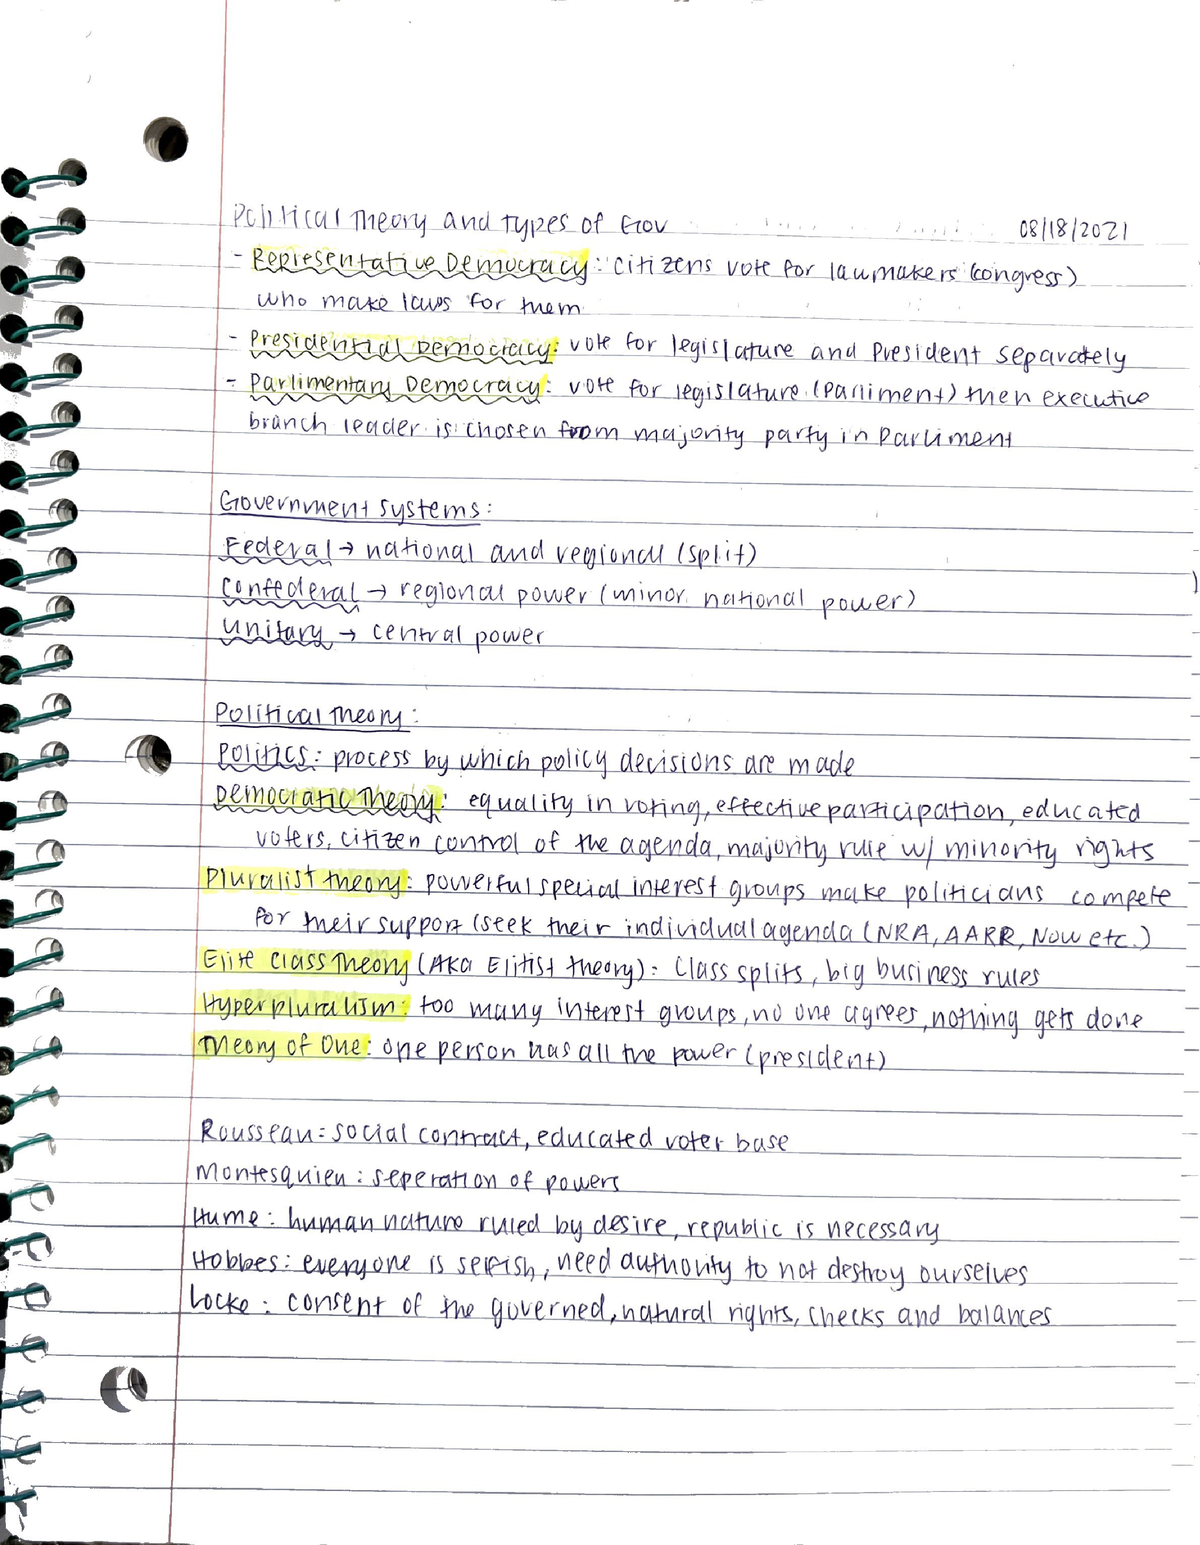 Political Theory and Types of Gov 08/18/2021
- Representative Democracy: citizens vote for lawmakers (congress)
who make laws for them
- Presidential Democracy: vote for legislature and President separately
- Parlimentary Democracy: vote for legislature (Parliment) then executive
branch leader is chosen from majority party in Parliment
Government Systems:
Federal → national and regional (split)
Confederal → regional power (minor national power)
Unitary → central power
Political Theory:
Politics: process by which policy decisions are made
Democratic Theory: equality in voting, effective participation, educated
voters, citizen control of the agenda, majority rule w/ minority rights
Pluralist theory: powerful special interest groups make politicians compete
for their support (seek their individual agenda (NRA, AARR, NOW etc.)
Elite Class Theory (AKA Elitist theory): Class splits, big business rules
Hyperpluralism: too many interest groups, no one agrees, nothing gets done
Theory of One: one person has all the power (president)
Rousseau: social contract, educated voter base
Montesquieu: seperation of powers
Hume: human nature ruled by desire, republic is necessary
Hobbes: everyone is selfish, need authority to not destroy ourselves
Locke: consent of the governed, natural rights, checks and balances